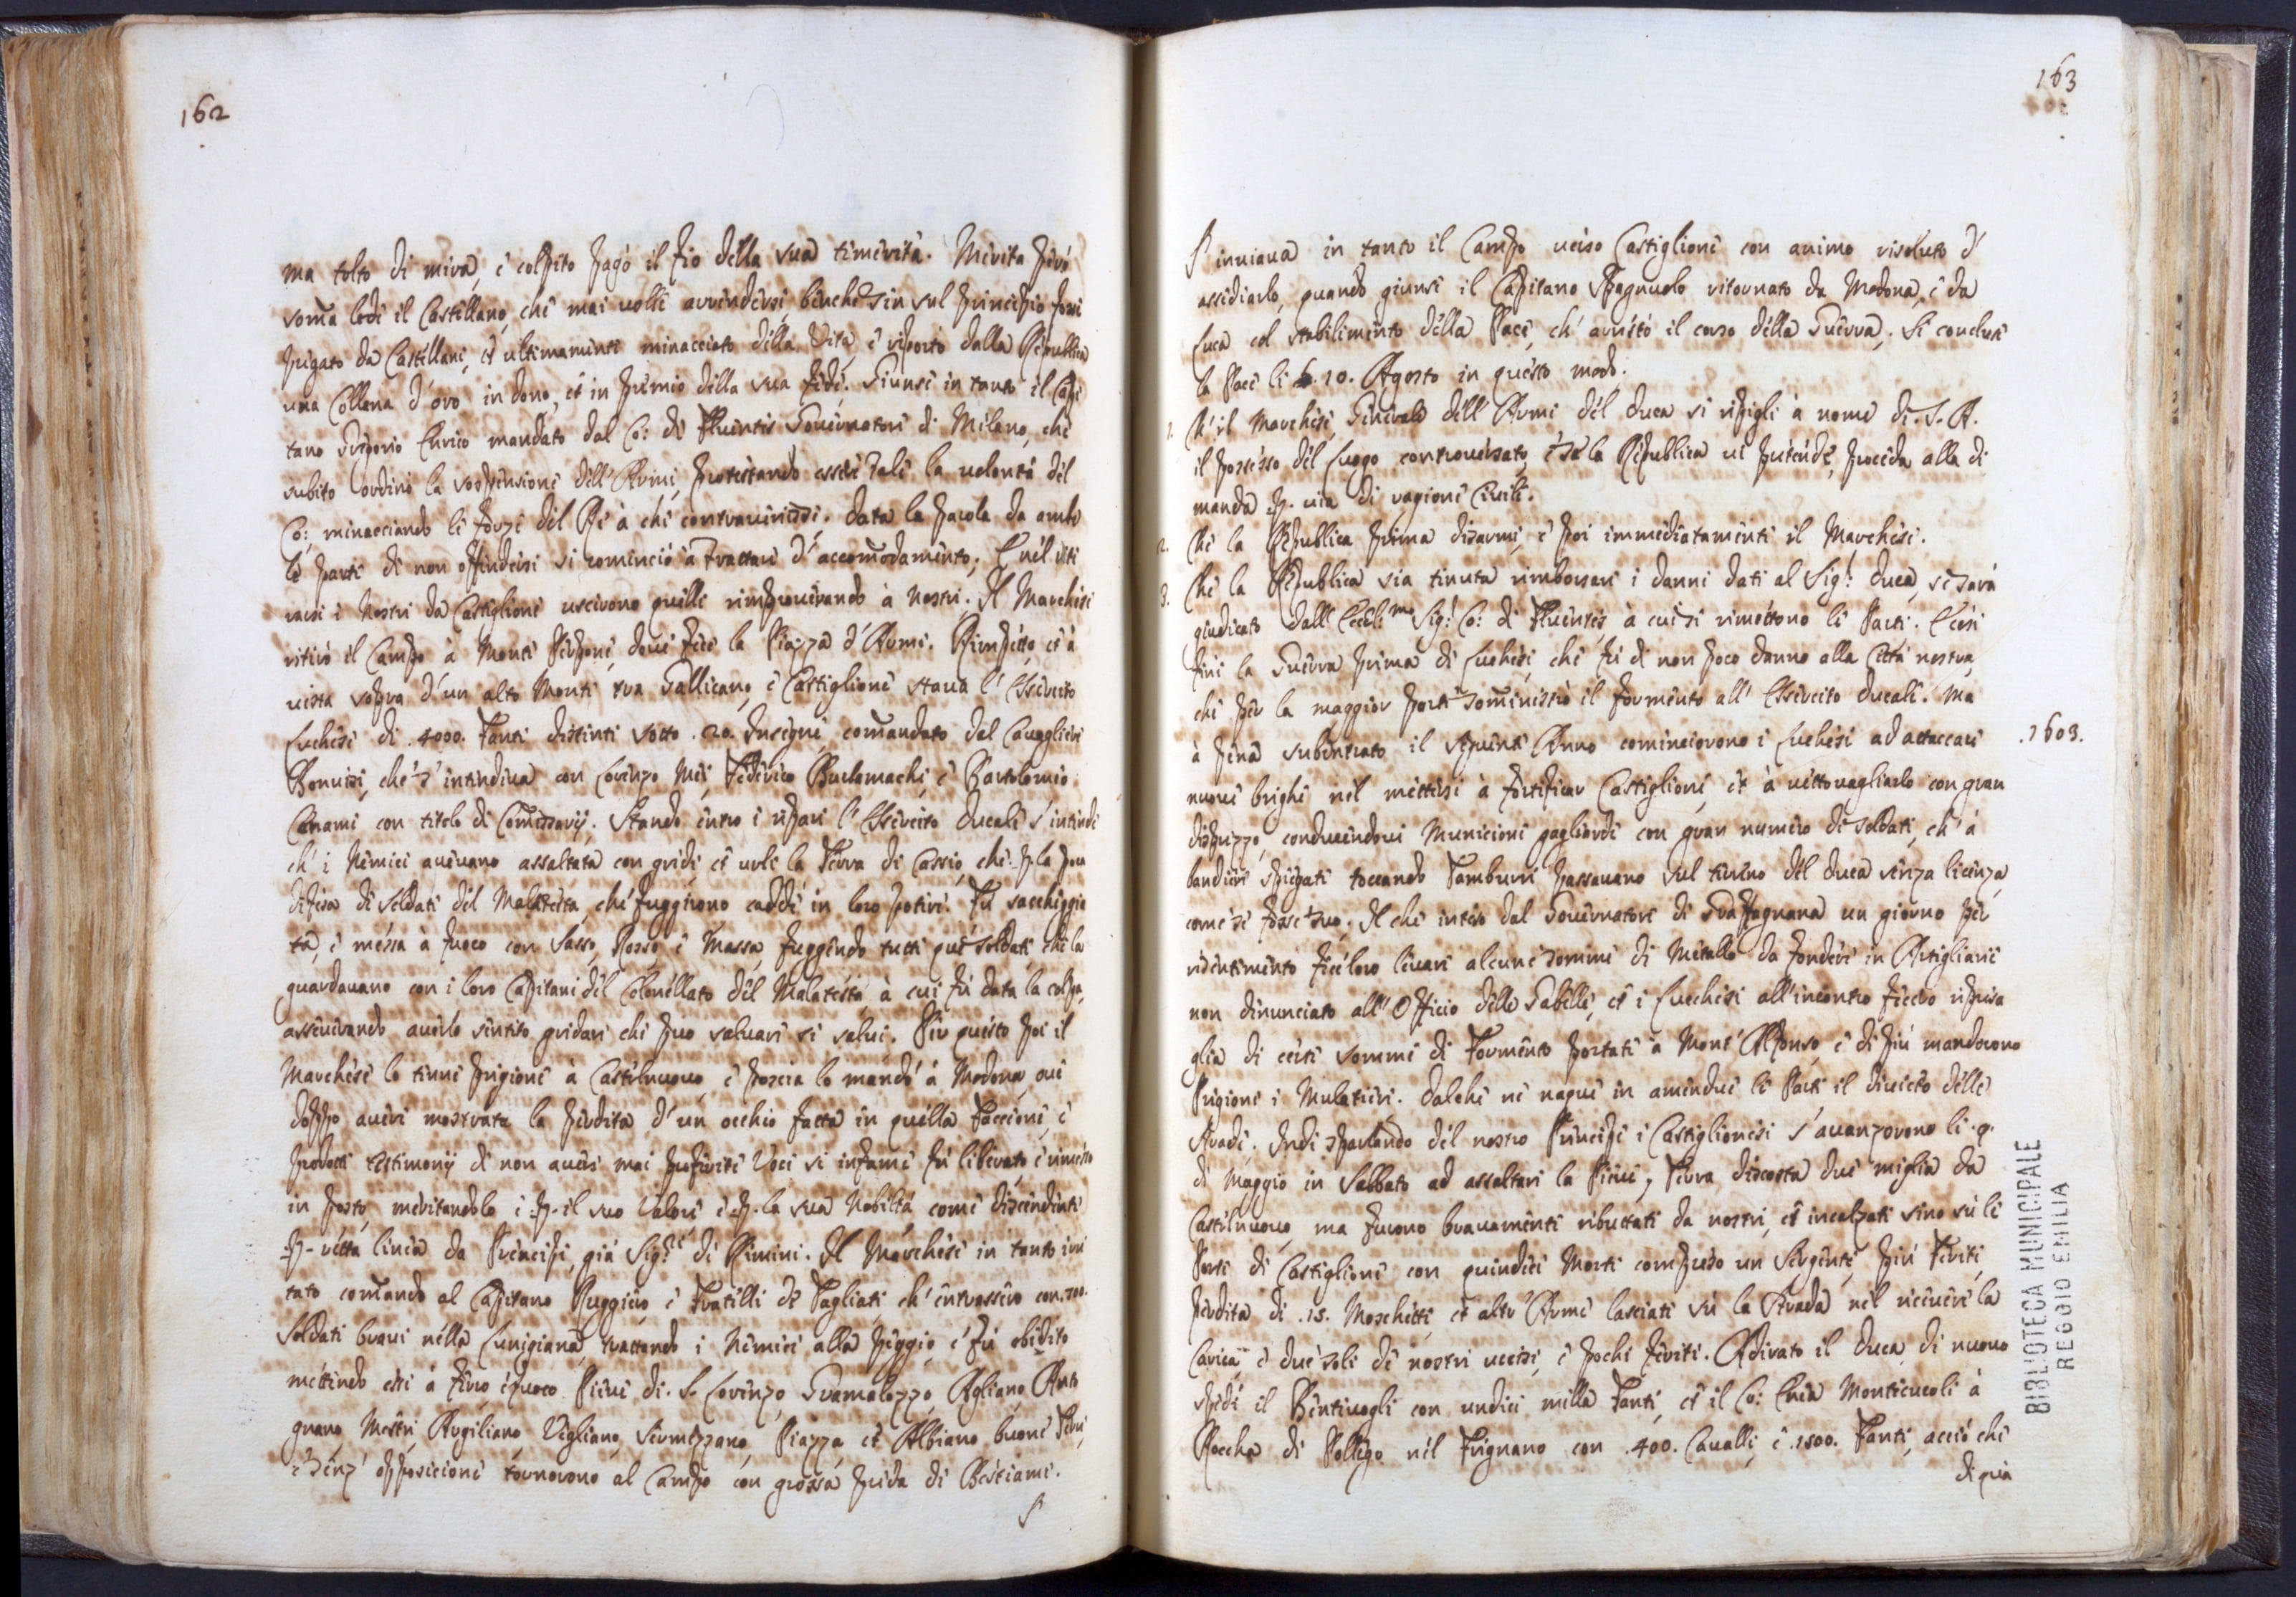 162
ma tolto di mira, e colpito pagò il fio della sua temerità. Merita però
somma lode il Castellano, che mai volle arrendersi, benche sin sul principio fosse
pregato da Castellani, et ultimamente minacciato della Vita, e riportò dalla Republica
una Collana d'oro in dono, et in premio della sua fede. Giunse in tanto il Capi
tano Gregorio Enrico mandato dal Co: di Fluentes Governatore di Milano, che
subito ordinò la sospensione dell'Armi, protestando essere tale la volontà del
Co: minacciando le forze del Rè à chi contravenisse. Data la parola da ambe
le parti di non offendersi si cominciò a trattare d'accomodamento. E nel riti
rarsi i Nostri da Castiglione uscirono quelli rimproverando à Nostri. Il Marchese
ritirò il Campo à Monte Perpone, dove fece la Piazza d'Armi. Rimpetto, et à
vista sopra d'un alto Monte tra Gallicano, e Castiglione stava l'Essercito
Luchese di .4000. Fanti distinti sotto .20. Insegne, comandato dal Cavagliere
Bonvisi, che s'intendeva con Lorenzo Mei, Federico Burlamachi, e Bartolomio
Cenami con titolo di Comissarij. Stando entro i ripari l'Essercito Ducale s'intende
ch'i Nemici avevano assaltata con gridi, et urli la Terra di Cassio, che p la poca
difesa di Soldati del Malatesta, che fuggirono cadde in loro potere. Fù sacchiggia
ta, e messa à fuoco con Sasso, Rosso, e Massa, fuggendo tutti que soldati, che la
guardavano con i loro Capitani del Colonellato del Malatesta à cui fù data la colpa,
asserivando averlo sentito gridare chi può salvare si salvi. Per questo poi il
Marchese lo tenne prigione à Castelnuovo, e poscia lo mandò à Modona, ove
doppo avere mostrata la perdita d'un occhio fatta in quella Faccione, e
prodotti testimonij di non avere mai proferite Voci si infame fù liberato, e rimesso
in posto, meritandolo e p il suo Valore e p la sua Nobiltà come discendente
p retta linea da Principi, già Sig.ri di Rimini. Il Marchese in tanto irri
tato comandò al Capitano Ruggiero, e Fratelli de Tagliati, ch'entrassero con .700.
Soldati bravi nella Lunigiana, trattando i Nemici alla peggio, e fù obidito
mettendo essi à ferro, e fuoco Pieve di S. Lorenzo, Gramolazzo, Agliano, Anto
gnano, Metri, Argiliano, Vegliano, Sermezzano, Piazza, et Albiano, buone Terre,
e senz'opposicione tornorono al Campo con grossa preda di Bestiami.
S'
163
S'inviava in tanto il Campo verso Castiglione con animo risoluto d'
assediarlo, quando giunse il Capitano Spagnuolo ritornato da Modona, e da
Luca col stabilimento della Pace, ch'arrestò il corso della Guerra. Si concluse
la Pace li 10. Agosto in questo modo.
1. Ch'il Marchese, Generale dell'Armi del Duca si ripigli à nome di S. A.
il possesso del Luogo controversato, e se la Republica vi pretende, proceda alla di
manda p via di ragione Civile.
2. Che la Republica prima disarmi, e poi immediatamente il Marchese.
3. Che la Republica sia tenuta rimborsare i danni dati al Sig.r Duca, se sarà
giudicato dall'Eccell.mo Sig.r Co: di Fluentes, à cui si rimettono le Parti. E così
finì la Guerra prima di Luchesi, che fù di non poco danno alla Città nostra,
che per la maggior parte sominístrò il formento all'Essercito Ducale. Ma
à pena subentrato il seguente Anno cominciorono i Luchesi ad attaccare .1603.
nuove brighe nel mettersi à fortificar Castiglione, et à vettovagliarlo con gran
disprezzo, conducendovi Municioni gagliarde con gran numero di soldati, ch'à
bandiere spiegate toccando Tamburri passavano sul terreno del Duca senza licenza,
come se fosse suo. Il che inteso dal Governatore di Graffagnana un giorno per
risentimento fece loro levare alcune somme di Metallo da fondere in Artigliarie
non dinunciato all'Officio delle Gabelle, et i Lucchesi all'incontro fecero ripresa
glia di certe somme di Formento portate à Mont'Alfonso, e di più mandorono
Prigione i Mulattieri. Dalche ne naque in amendue le Parti il divieto delle
Strade. Indi sparlando del nostro Principe i Castiglionesi s'avanzorono li .9.
di Maggio in Sabbato ad assaltare la Pieve, Terra discosta due miglia da
Castelnuovo, ma furono bravamente ributtati da nostri, et incalzati sino sù le
Porte di Castiglione con quindici Morti compreso un Sergente, più Feriti,
perdita di .15. Moschetti, et altr'Armi lasciate sù la Strada nel ricevere la
Carica, e due soli de nostri uccisi, e pochi feriti. Adirato il Duca di nuovo
spedì il Bentivogli con undici milla Fanti, et il Co: Enea Montecucoli à
Roccha di Pellego nel Frignano con .400. Cavalli, e .1500. Fanti, acciò che
di qua
BIBLIOTECA MUNICIPALE
REGGIO EMILIA